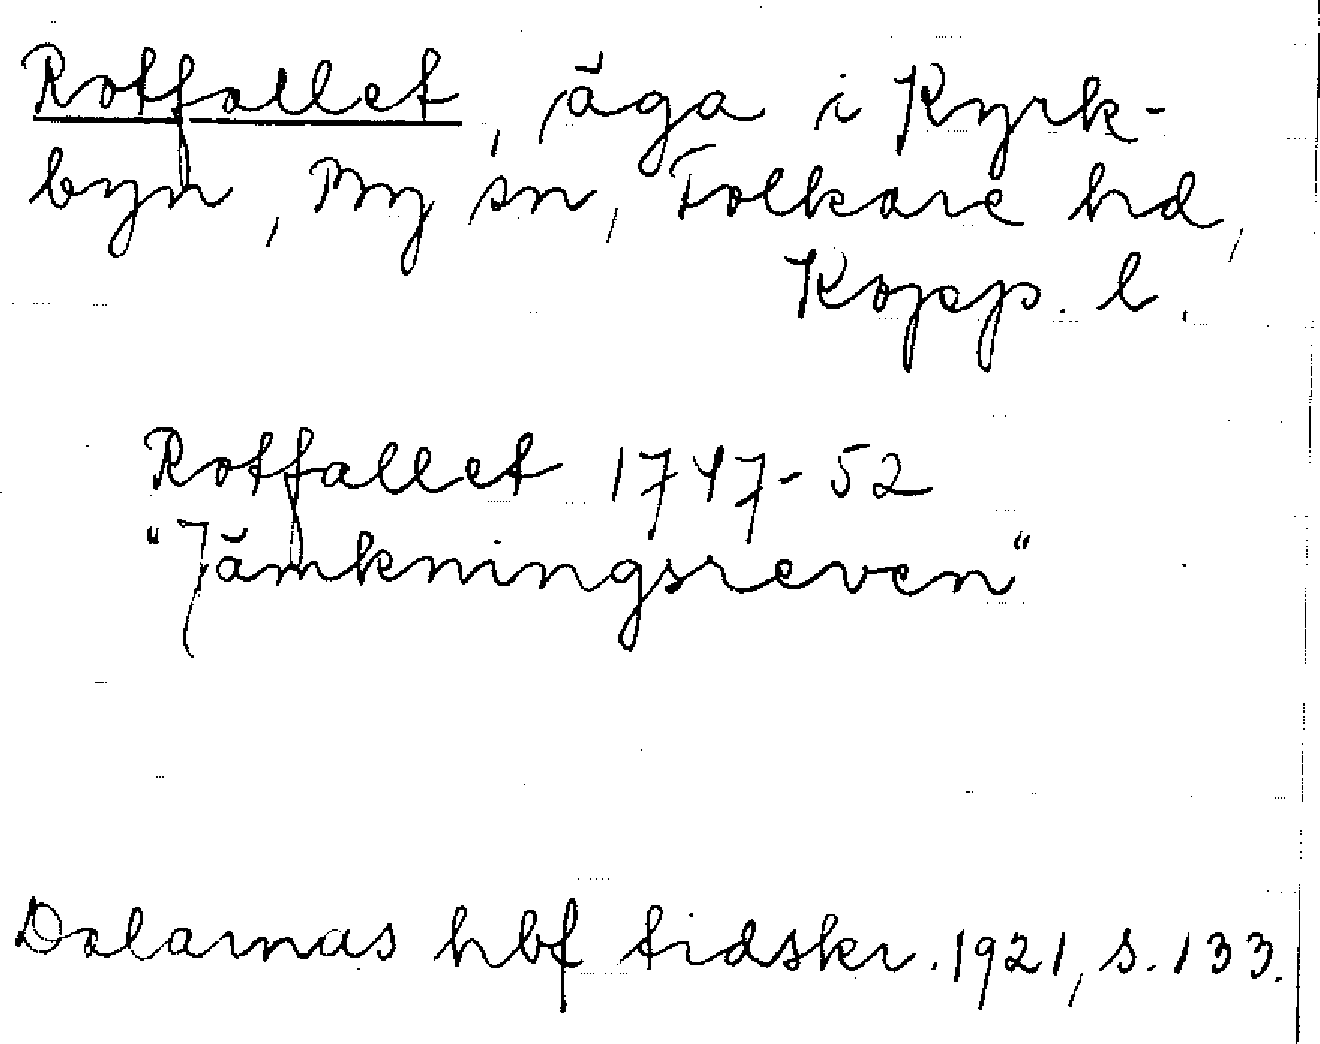 Rotfallet, äga i Kyrk-
byn, By sn, Folkare hd,
Kopp. l.
Rotfallet 1747-52
"Jämkningsreven"
Dalarnas hbf tidskr. 1921, s. 133.